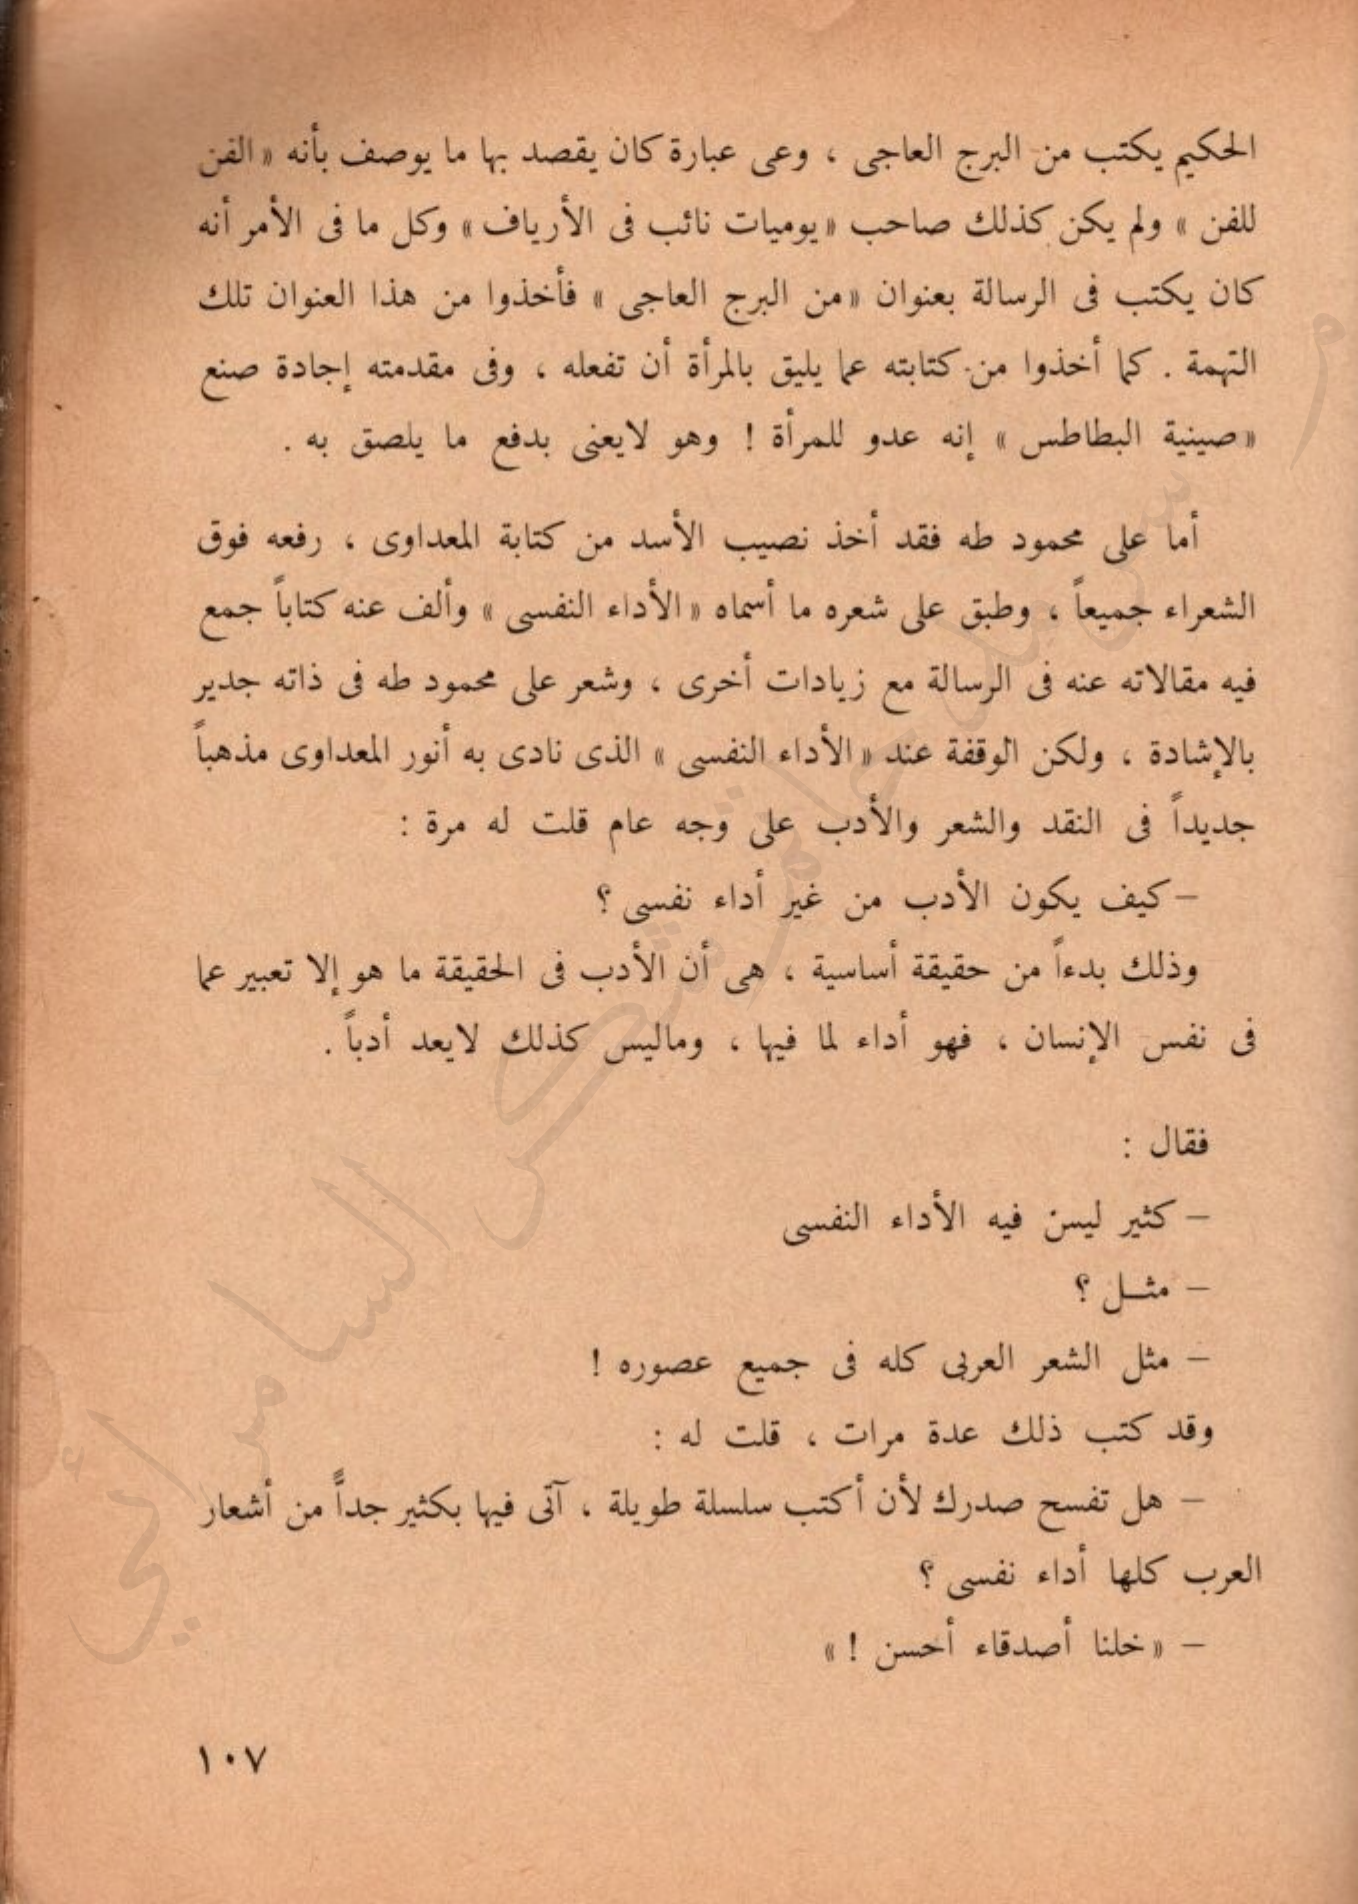 الحكيم يكتب من البرج العاجى ، وعى عبارة كان يقصد بها ما يوصف بأنه « الفن
للفن » ولم يكن كذلك صاحب « يوميات نائب فى الأرياف » وكل ما فى الأمر أنه
كان يكتب فى الرسالة بعنوان « من البرج العاجى » فأخذوا من هذا العنوان تلك
التهمة . كما أخذوا من كتابته عما يليق بالمرأة أن تفعله ، وفى مقدمته إجادة صنع
« صينية البطاطس » إنه عدو للمرأة ! وهو لايعنى بدفع ما يلصق به .
أما على محمود طه فقد أخذ نصيب الأسد من كتابة المعداوى ، رفعه فوق
الشعراء جميعاً ، وطبق على شعره ما أسماه « الأداء النفسى » وألف عنه كتاباً جمع
فيه مقالاته عنه فى الرسالة مع زيادات أخرى ، وشعر على محمود طه فى ذاته جدير
بالإشادة ، ولكن الوقفة عند « الأداء النفسى » الذى نادى به أنور المعداوى مذهباً
جديداً فى النقد والشعر والأدب على وجه عام قلت له مرة :
– كيف يكون الأدب من غير أداء نفسى ؟
وذلك بدءاً من حقيقة أساسية ، هى أن الأدب فى الحقيقة ما هو إلا تعبير عما
فى نفس الإنسان ، فهو أداء لما فيها ، وماليس كذلك لايعد أدباً .
فقال :
– كثير ليس فيه الأداء النفسى
– مثـل ؟
– مثل الشعر العربى كله فى جميع عصوره !
وقد كتب ذلك عدة مرات ، قلت له :
– هل تفسح صدرك لأن أكتب سلسلة طويلة ، آتى فيها بكثير جداً من أشعار
العرب كلها أداء نفسى ؟
– « خلنا أصدقاء أحسن ! »
١٠٧